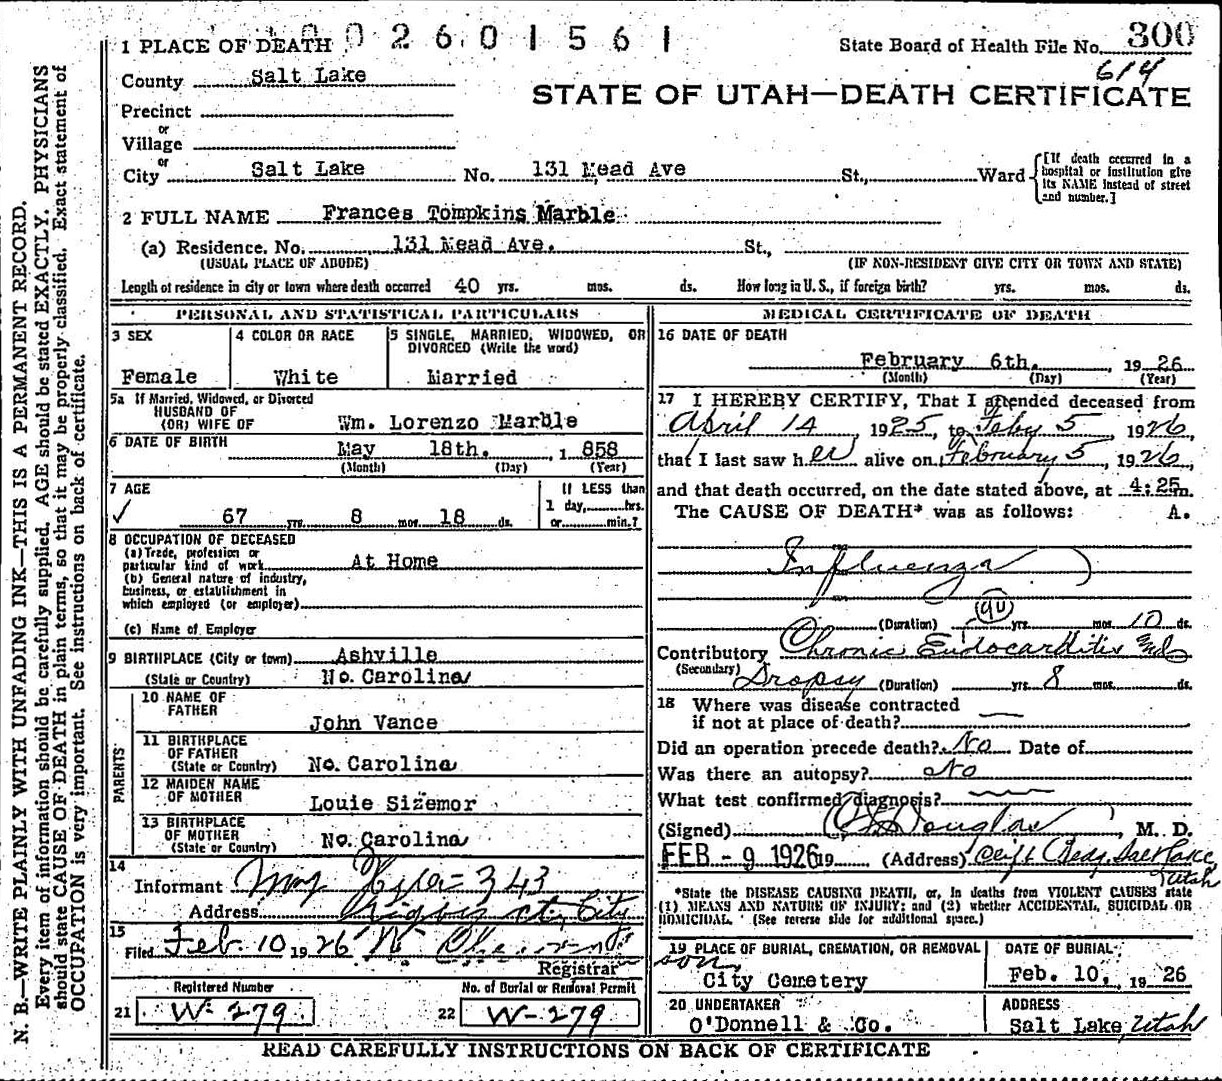 N. B.—WRITE PLAINLY WITH UNFADING INK—THIS IS A PERMANENT RECORD.
Every item of information should be carefully supplied. AGE should be stated EXACTLY. PHYSICIANS
should state CAUSE OF DEATH in plain terms, so that it may be properly classified. Exact statement of
OCCUPATION is very important. See instructions on back of certificate.
02601561
1 PLACE OF DEATH
State Board of Health File No. 300
614
County Salt Lake
STATE OF UTAH—DEATH CERTIFICATE
Precinct
or
Village
or
City Salt Lake No. 131 Mead Ave St., Ward
[If death occurred in a
hospital or institution give
its NAME instead of street
and number.]
2 FULL NAME Frances Tompkins Marble
(a) Residence, No. 131 Mead Ave. St.,
(USUAL PLACE OF ABODE) (IF NON-RESIDENT GIVE CITY OR TOWN AND STATE)
Length of residence in city or town where death occurred 40 yrs. mos. ds. How long in U. S., if foreign birth? yrs. mos. ds.
PERSONAL AND STATISTICAL PARTICULARS
3 SEX
Female
4 COLOR OR RACE
White
5 SINGLE, MARRIED, WIDOWED, OR
DIVORCED (Write the word)
Married
5a If Married, Widowed, or Divorced
HUSBAND OF
(OR) WIFE OF Wm. Lorenzo Marble
6 DATE OF BIRTH
May 18th. , 1 858
(Month) (Day) (Year)
7 AGE
67 yrs. 8 mos. 18 ds.
If LESS than
1 day, hrs.
or min.?
8 OCCUPATION OF DECEASED
(a) Trade, profession or
particular kind of work At Home
(b) General nature of industry,
business, or establishment in
which employed (or employer)
(c) Name of Employer
9 BIRTHPLACE (City or town) Ashville
(State or Country) No. Carolina
PARENTS
10 NAME OF
FATHER
John Vance
11 BIRTHPLACE
OF FATHER
(State or Country) No. Carolina
12 MAIDEN NAME
OF MOTHER
Louie Sizemor
13 BIRTHPLACE
OF MOTHER
(State or Country) No. Carolina
14
Informant 343
Address City
15
Filed Feb. 10 1926
Registrar
Registered Number
21 W-279
No. of Burial or Removal Permit
22 W-279
MEDICAL CERTIFICATE OF DEATH
16 DATE OF DEATH
February 6th. , 19 26
(Month) (Day) (Year)
17 I HEREBY CERTIFY, That I attended deceased from
April 14 , 1925, to Feby 5 1926,
that I last saw her alive on February 5, 1926,
and that death occurred, on the date stated above, at 4:25 m.
The CAUSE OF DEATH* was as follows: A.
Influenza
(Duration) yrs. mos. 10 ds.
Contributory Chronic Endocarditis
(Secondary) Dropsy (Duration) yrs. 8 mos. ds.
18 Where was disease contracted
if not at place of death?
Did an operation precede death? No Date of
Was there an autopsy? No
What test confirmed diagnosis?
(Signed) Douglas, M. D.
FEB - 9 1926 19 (Address) Clift Bldg, Salt Lake,
Utah
*State the DISEASE CAUSING DEATH, or, in deaths from VIOLENT CAUSES state
(1) MEANS AND NATURE OF INJURY; and (2) whether ACCIDENTAL, SUICIDAL OR
HOMICIDAL. (See reverse side for additional space.)
19 PLACE OF BURIAL, CREMATION, OR REMOVAL
City Cemetery
DATE OF BURIAL
Feb. 10. , 19 26
20 UNDERTAKER
O'Donnell & Co.
ADDRESS
Salt Lake, Utah
READ CAREFULLY INSTRUCTIONS ON BACK OF CERTIFICATE